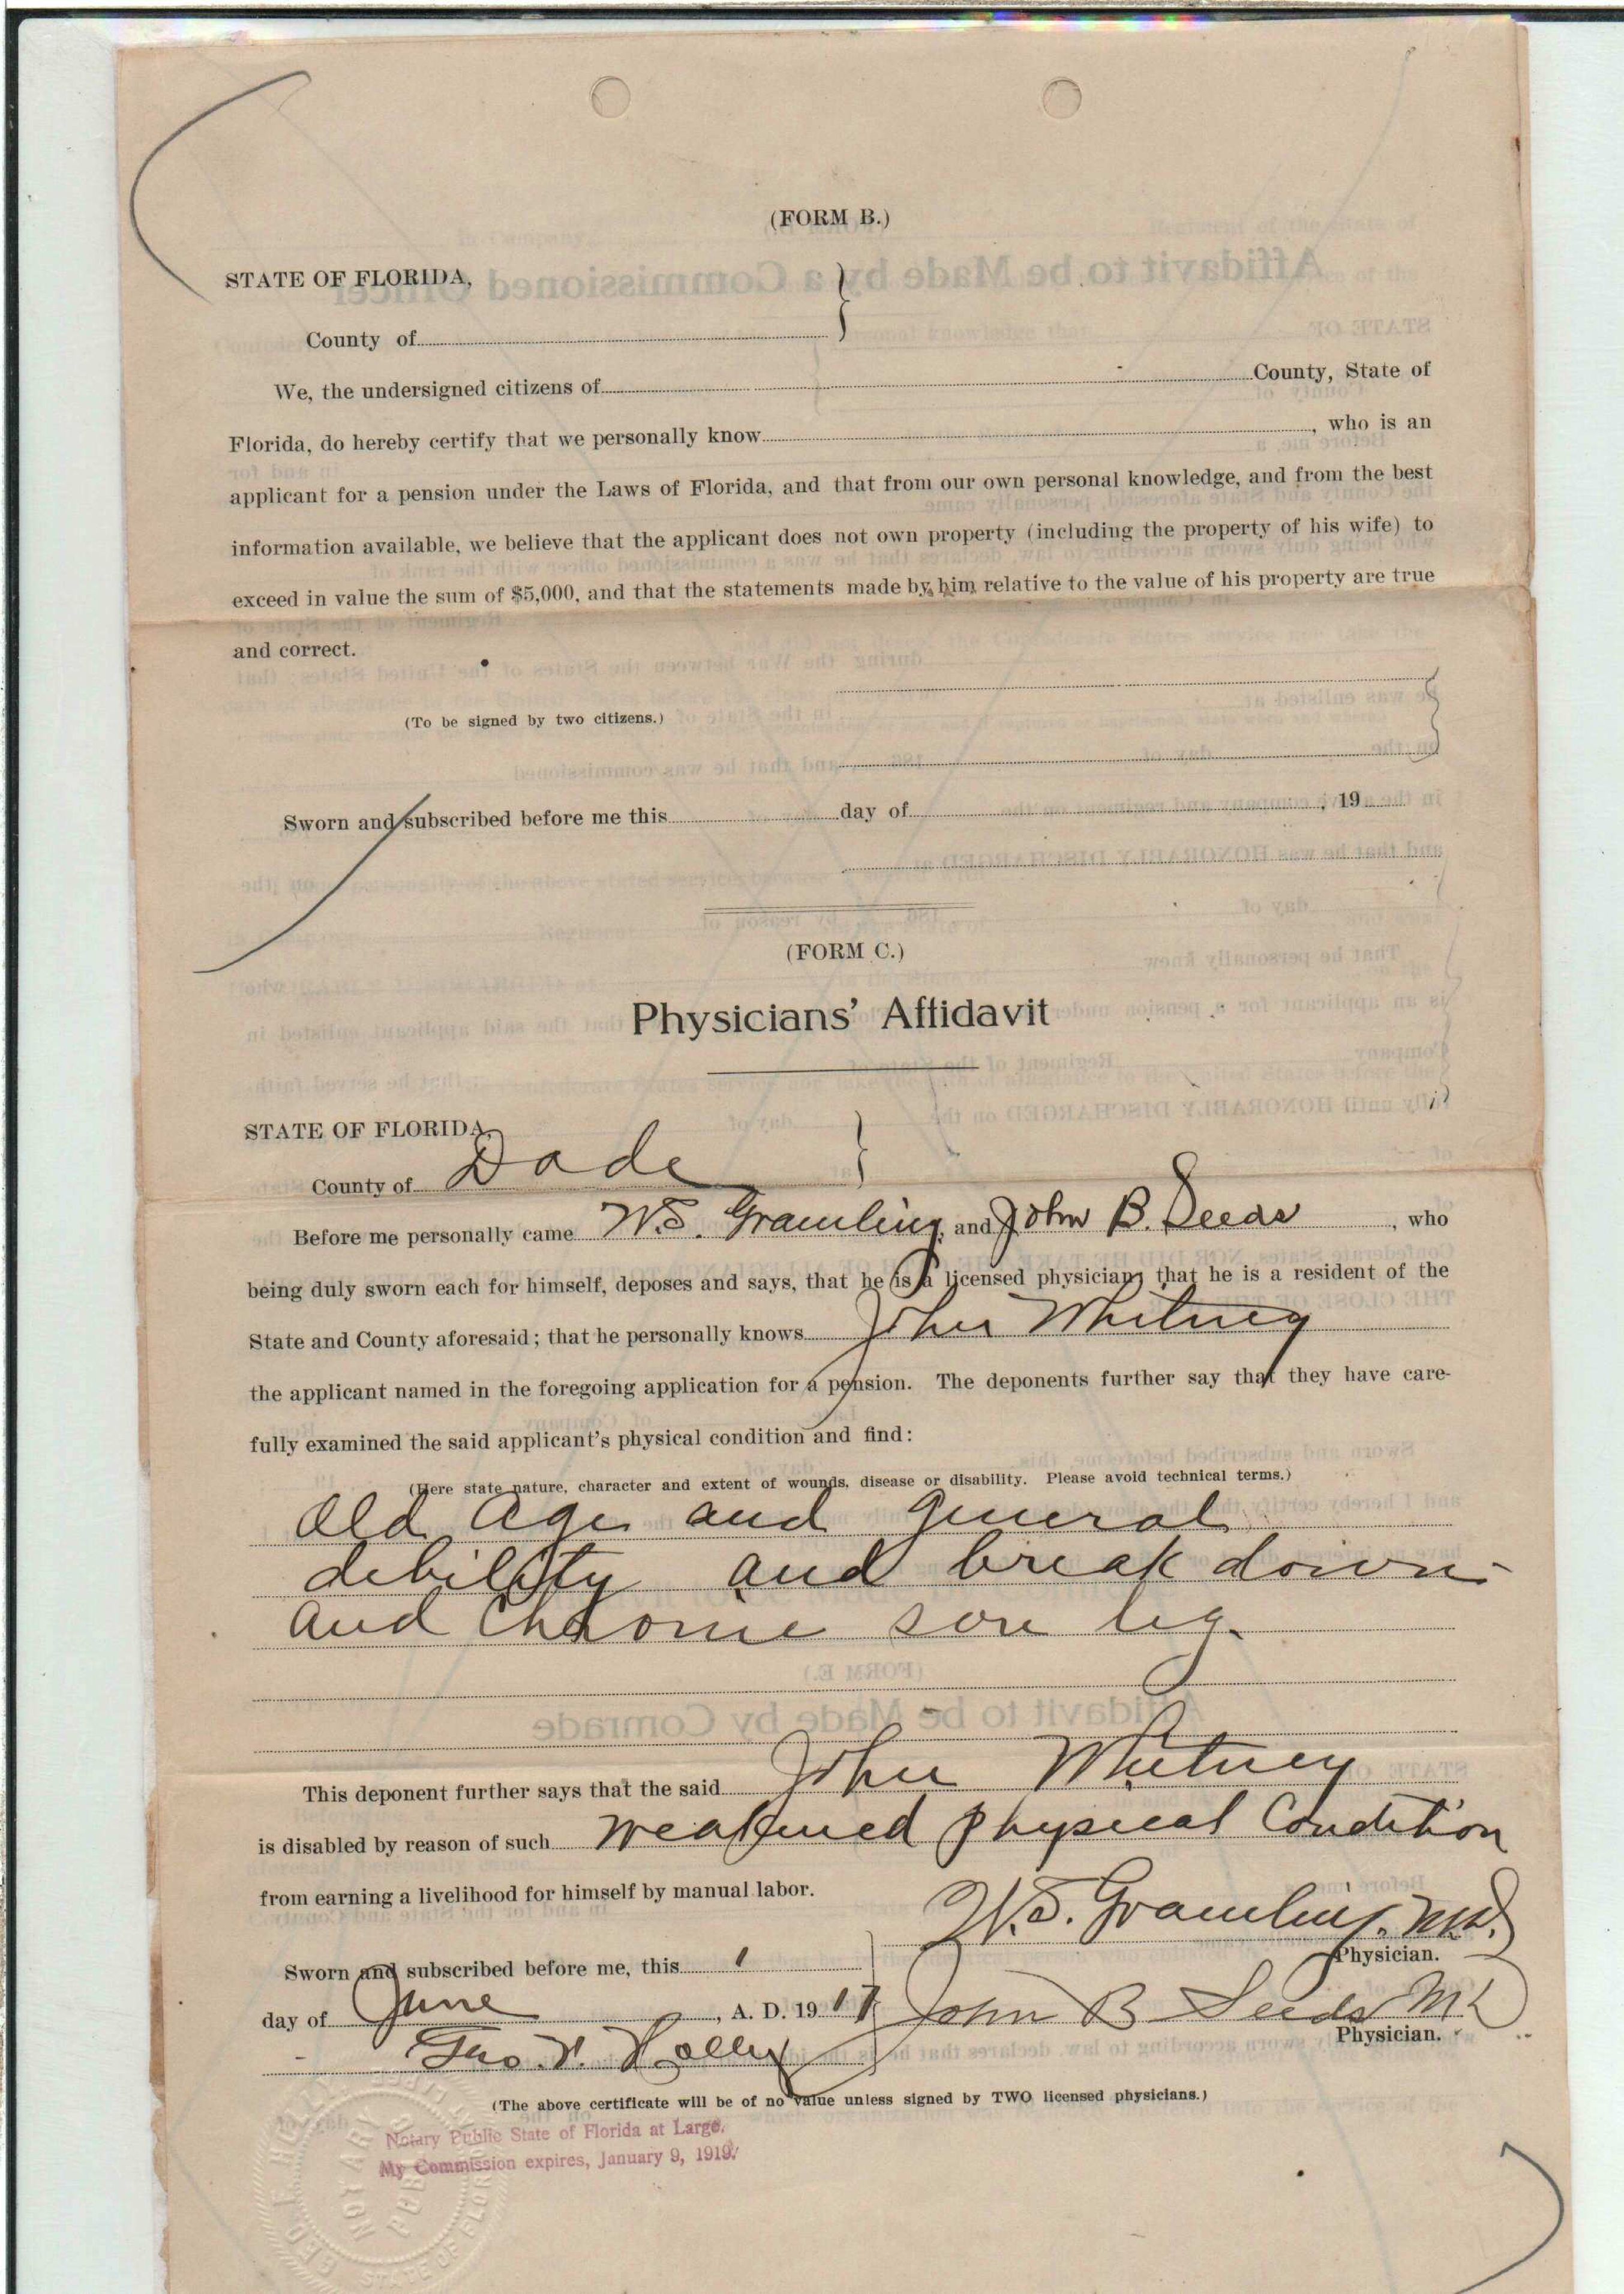 (FORM B.)
STATE OF FLORIDA,
County of
We, the undersigned citizens of County, State of
Florida, do hereby certify that we personally know , who is an
applicant for a pension under the Laws of Florida, and that from our own personal knowledge, and from the best
information available, we believe that the applicant does not own property (including the property of his wife) to
exceed in value the sum of $5,000, and that the statements made by him relative to the value of his property are true
and correct.
(To be signed by two citizens.)
Sworn and subscribed before me this day of , 19
(FORM C.)
Physicians' Affidavit
STATE OF FLORIDA,
County of Dade
Before me personally came W.S. Gramling, and John B. Seeds , who
being duly sworn each for himself, deposes and says, that he is a licensed physician; that he is a resident of the
State and County aforesaid; that he personally knows John Whitney
the applicant named in the foregoing application for a pension. The deponents further say that they have care-
fully examined the said applicant's physical condition and find:
(Here state nature, character and extent of wounds, disease or disability. Please avoid technical terms.)
Old age and general
debility and break down
and chronic sore leg.
This deponent further says that the said John Whitney
is disabled by reason of such weakened physical Condition
from earning a livelihood for himself by manual labor.
W.S. Gramling. M.D.
Physician.
Sworn and subscribed before me, this 1
day of June , A. D. 1917 John B Seeds MD
Physician.
Geo. Holly
(The above certificate will be of no value unless signed by TWO licensed physicians.)
Notary Public State of Florida at Large.
My Commission expires, January 9, 1919.
NOTARY
PUBLIC
STATE OF FLORIDA